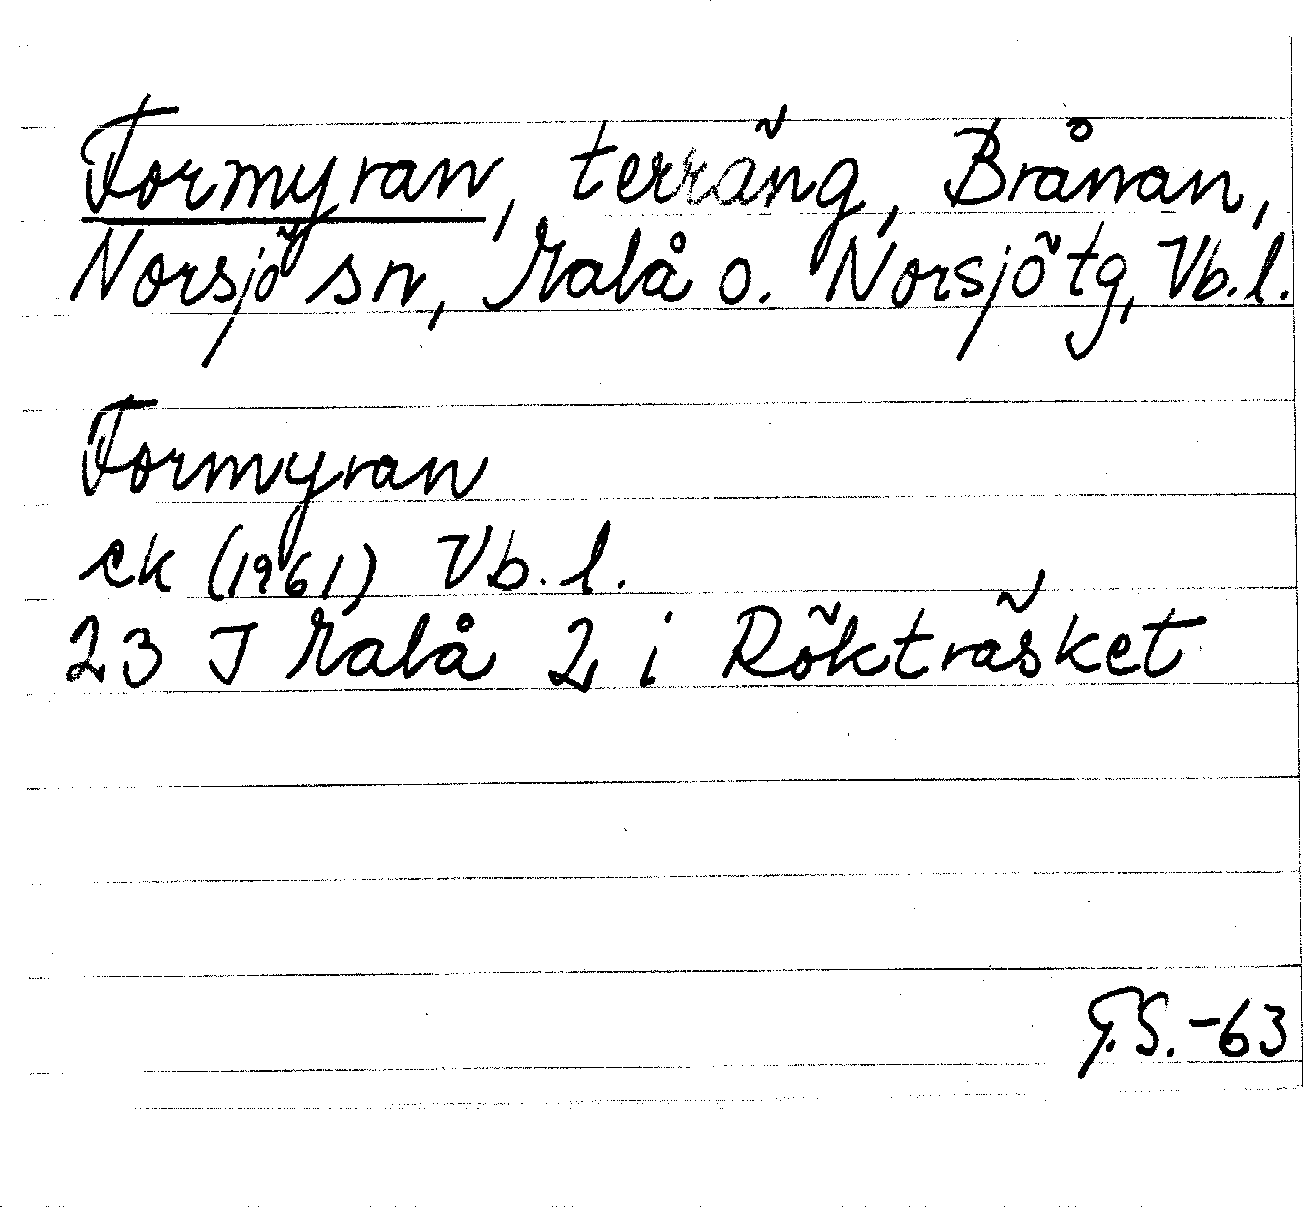 Formyran, terräng, Brånan,
Norsjö sn, Malå o. Norsjö tg, Vb. l.
Formyran
ek (1961) Vb. l.
23 J Malå 2 i Rökträsket
G.S. -63